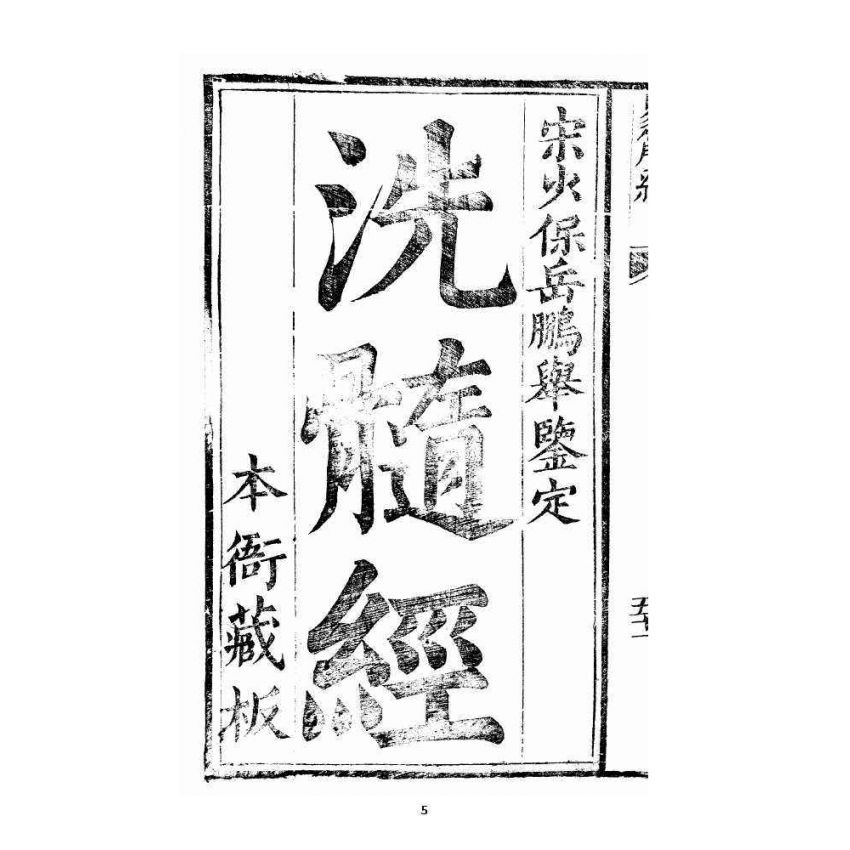 宋少保岳鵬舉鑒定
洗髓經
本衙藏板
5